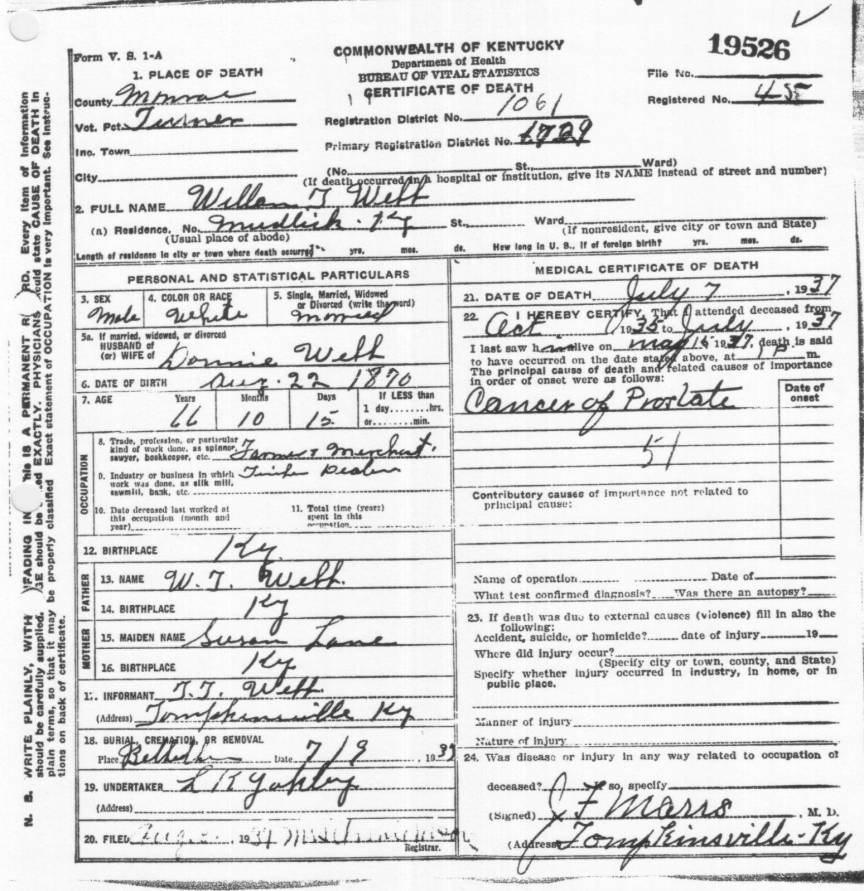 19526
Form V. S. 1-A
COMMONWEALTH OF KENTUCKY
Department of Health
BUREAU OF VITAL STATISTICS
CERTIFICATE OF DEATH
File No.
Registered No. 45
1. PLACE OF DEATH
County Monroe
Vot. Pct. Turner
Inc. Town
City
Registration District No. 1061
Primary Registration District No. 1729
(No. St., Ward)
(If death occurred in a hospital or institution, give its NAME instead of street and number)
2. FULL NAME T Webb
(a) Residence, No. Mudlick - Ky St., Ward
(Usual place of abode) (If nonresident, give city or town and State)
Length of residence in city or town where death occurred yrs. mos. ds. How long in U. S., if of foreign birth? yrs. mos. ds.
PERSONAL AND STATISTICAL PARTICULARS
3. SEX 4. COLOR OR RACE 5. Single, Married, Widowed
or Divorced (write the word)
Male White Married
5a. If married, widowed, or divorced
HUSBAND of
(or) WIFE of Donnie Webb
6. DATE OF BIRTH Aug. 22 1870
7. AGE Years Months Days If LESS than
66 10 15 1 day........hrs.
or........min.
OCCUPATION
8. Trade, profession, or particular
kind of work done, as spinner,
sawyer, bookkeeper, etc. Farmer & Merchant.
9. Industry or business in which
work was done, as silk mill,
sawmill, bank, etc. Dealer
10. Date deceased last worked at
this occupation (month and
year)
11. Total time (years)
spent in this
occupation
12. BIRTHPLACE Ky.
FATHER
13. NAME W. T. Webb.
14. BIRTHPLACE Ky
MOTHER
15. MAIDEN NAME Susan Lane
16. BIRTHPLACE Ky
17. INFORMANT T. T. Webb
(Address) Tompkinsville Ky
18. BURIAL, CREMATION, OR REMOVAL
Place Date 7/9 19
19. UNDERTAKER L K Yokley
(Address)
20. FILED Aug 19
Registrar.
MEDICAL CERTIFICATE OF DEATH
21. DATE OF DEATH July 7, 1937
22. I HEREBY CERTIFY, That I attended deceased from
Oct 1935 to July, 1937
I last saw him alive on May 15 1937, death is said
to have occurred on the date stated above, at 1 P m.
The principal cause of death and related causes of importance
in order of onset were as follows:
Date of
onset
Cancer of Prostate
51
Contributory causes of importance not related to
principal cause:
Name of operation Date of
What test confirmed diagnosis? Was there an autopsy?
23. If death was due to external causes (violence) fill in also the
following:
Accident, suicide, or homicide? date of injury 19
Where did injury occur?
(Specify city or town, county, and State)
Specify whether injury occurred in industry, in home, or in
public place.
Manner of injury
Nature of injury
24. Was disease or injury in any way related to occupation of
deceased? If so, specify
(Signed) J F Marrs, M. D.
(Address) Tompkinsville - Ky
N. B. WRITE PLAINLY, WITH FADING IN his IS A PERMANENT R RD. Every item of information
should be carefully supplied. GE should be ed EXACTLY. PHYSICIANS ould state CAUSE OF DEATH in
plain terms, so that it may be properly classified. Exact statement of OCCUPATION is very important. See instruc-
tions on back of certificate.